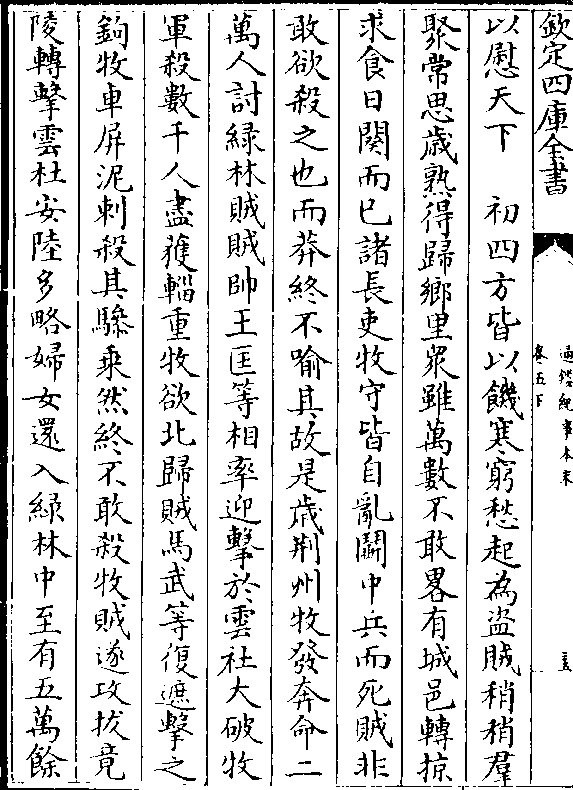 欽定四庫全書
通鑑紀事本末
卷五下
以慰天下　初四方皆以饑寒窮愁起為盜賊稍稍羣
聚常思歳熟得歸鄉里衆雖萬數不敢畧有城邑轉掠
求食日闋而已諸長吏牧守皆自亂鬬中兵而死賊非
敢欲殺之也而莽終不喻其故是歳荆州牧發奔命二
萬人討緑林賊賊帥王匡等相率迎擊於雲杜大破牧
軍殺數千人盡獲輜重牧欲北歸賊馬武等復遮擊之
鉤牧車屏泥刺殺其驂乘然終不敢殺牧賊遂攻拔竟
陵轉擊雲杜安陸多略婦女還入緑林中至有五萬餘